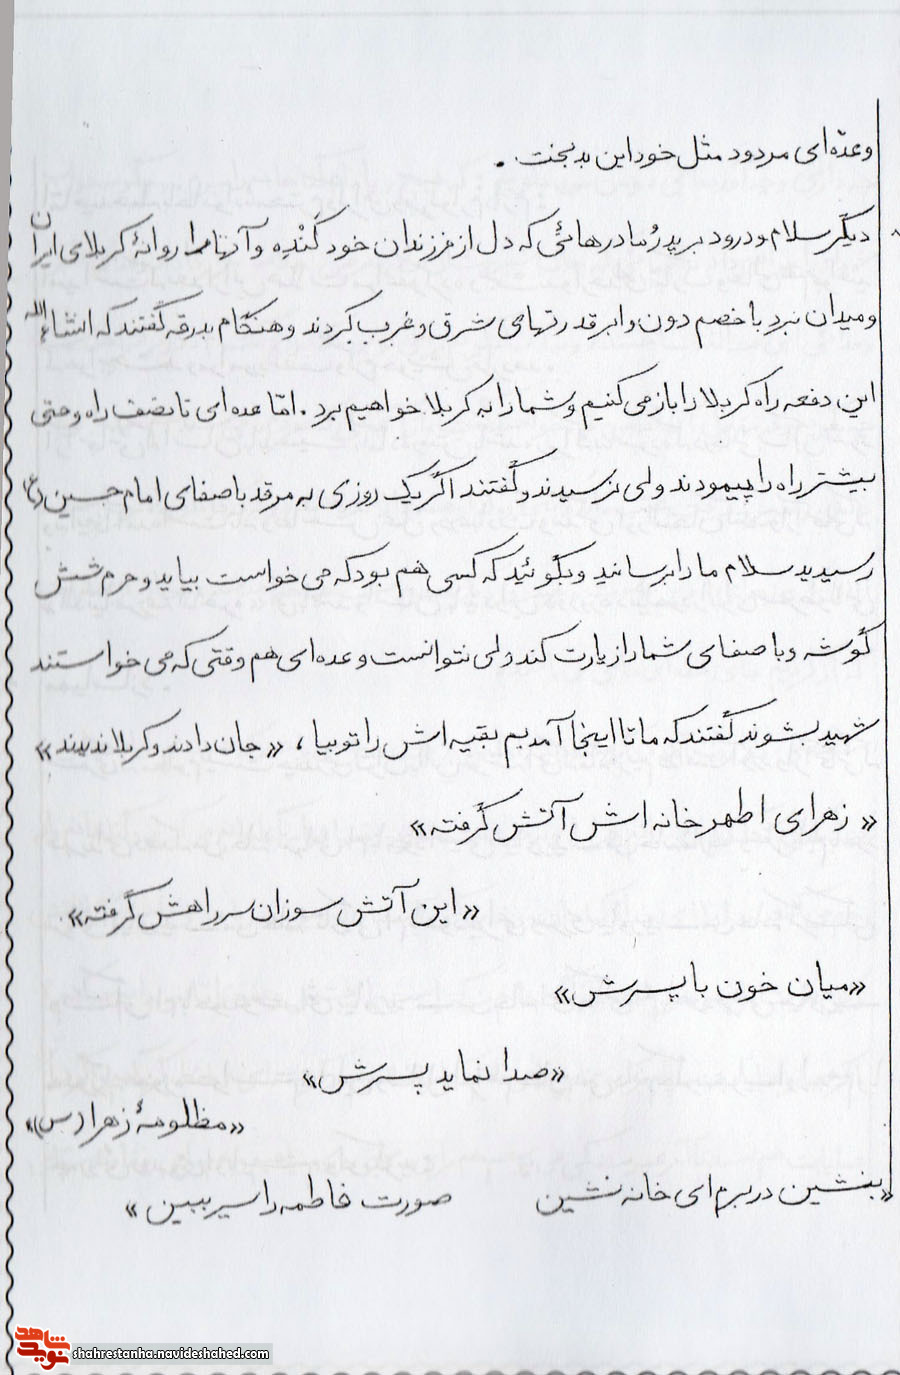 وعدّه ای مردود مثل خود این بدبخت .
دیگر سلام و درود بر پدر و مادرهائی که دل از فرزندان خود کَنْدِه و آنها را روانهٔ کربلای ایران
و میدان نبرد با خصم دون و ابرقدرتهای شرق و غرب کردند و هنگام بدرقه گفتند که انشاءالله
این دفعه راه کربلا را باز می کنیم و شما را به کربلا خواهیم برد . امّا عده ای تا نصف راه و حتی
بیشتر راه را پیمودند ولی نرسیدند و گفتند اگر یک روزی به مرقد باصفای امام حسین (ع)
رسیدید سلام ما را برسانید و بگوئید که کسی هم بود که می خواست بیاید و حرم شش
گوشه و باصفای شما را زیارت کند ولی نتوانست و عده ای هم وقتی که می خواستند
شهید بشوند گفتند که ما تا اینجا آمدیم بقیه اش را تو بیا ، «جان دادند و کربلا ندیدند»
« زهرای اطهر خانه اش آتش گرفته »
« این آتش سوزان سر راهش گرفته »
«میان خون با پسرش»
«صدا نماید پسرش»
«مظلومهٔ زهرا (س)»
«بنشین در برم ای خانه نشین صورت فاطمه را سیر ببین »
شاهد
نوید
shahrestanha.navideshahed.com